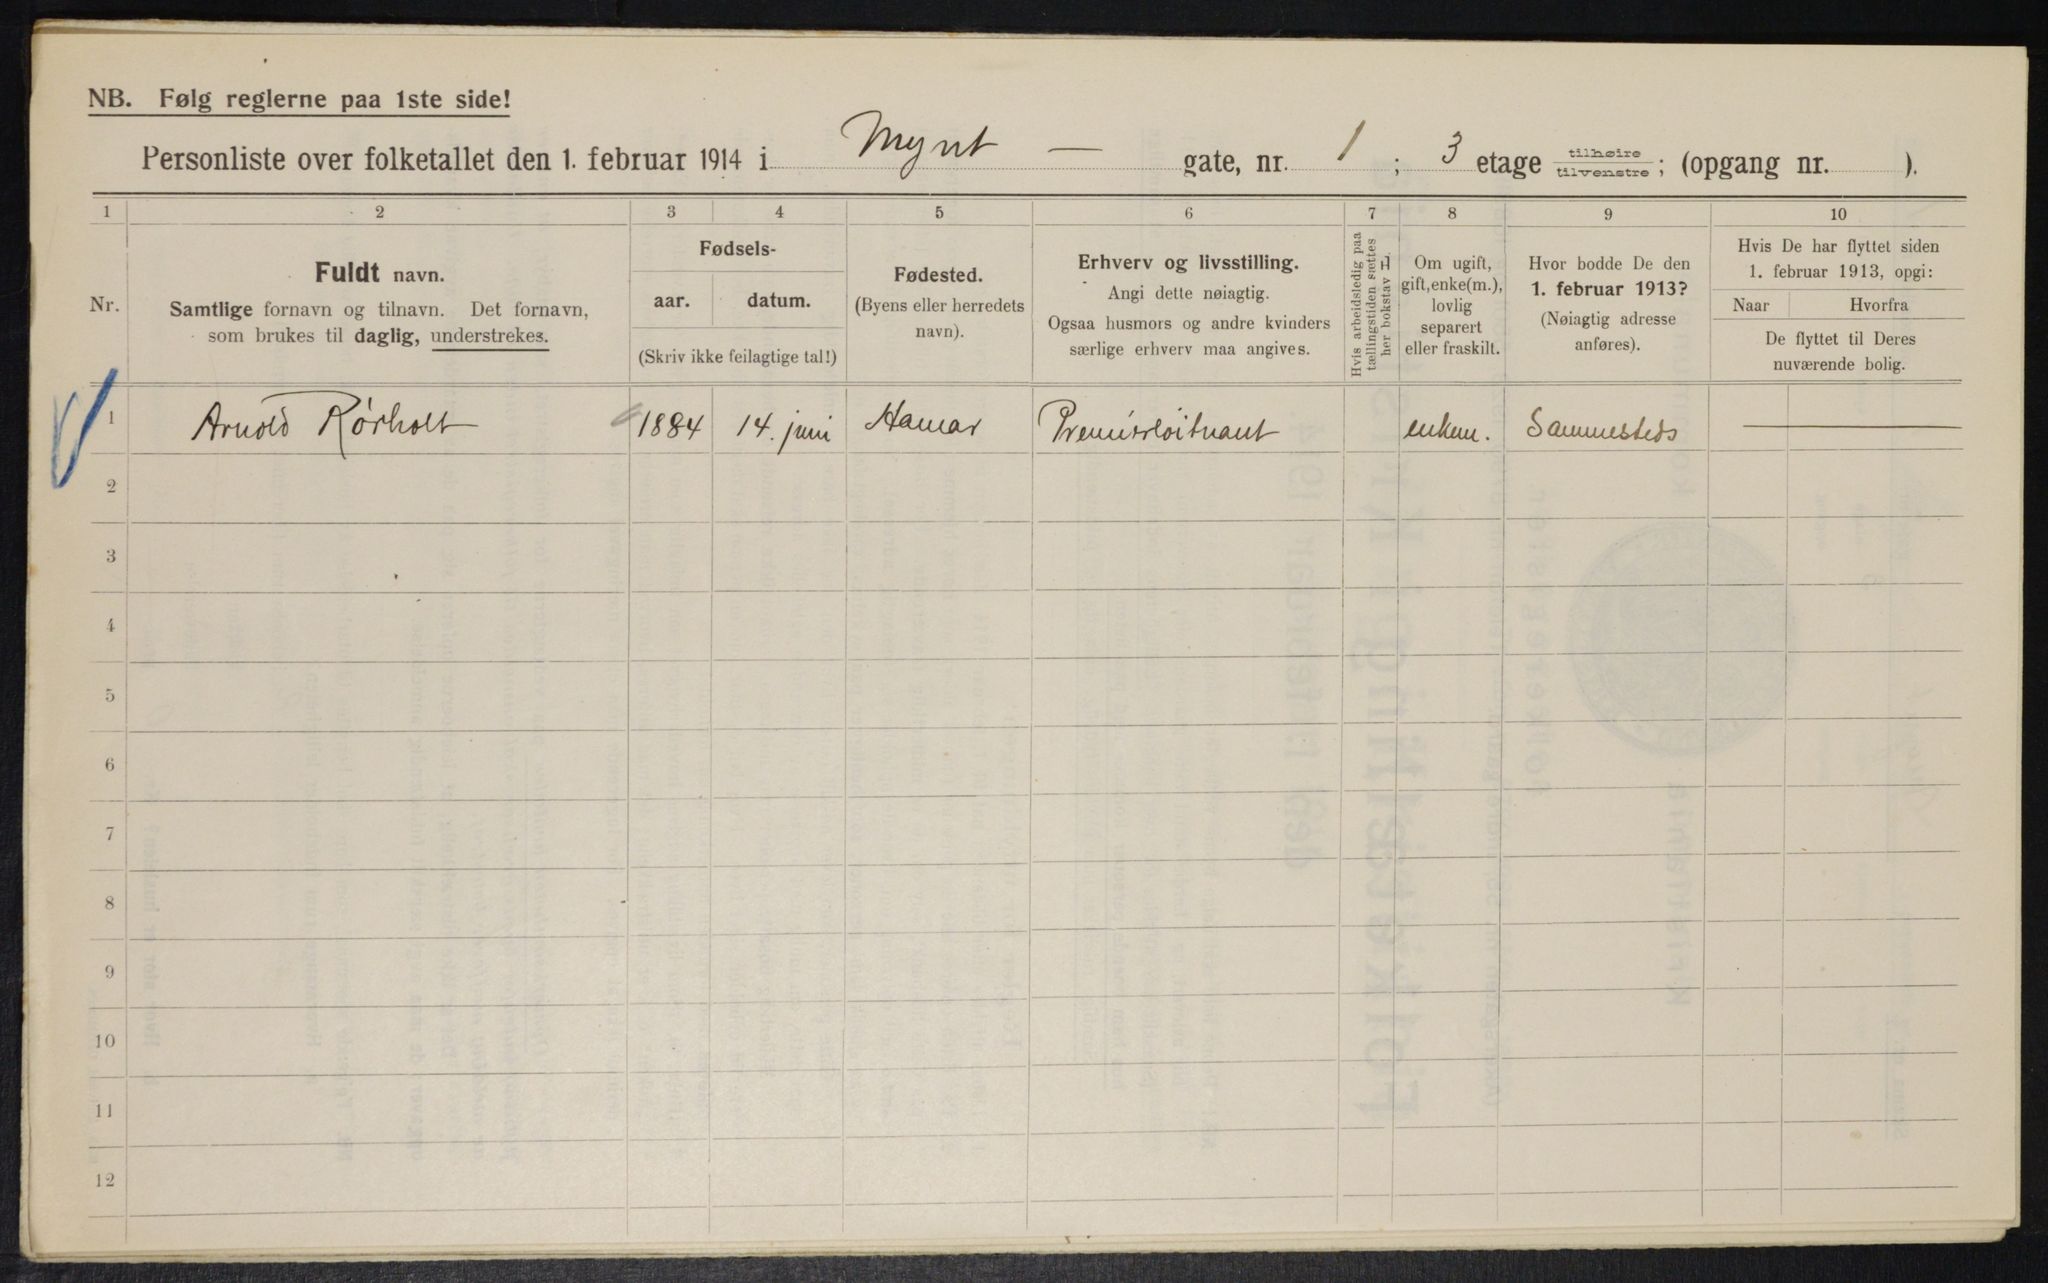 NB. Følg reglerne paa 1ste side!
Personliste over folketallet den 1. februar 1914 i Mynt — gate, nr. 1 ; 3 etage tilhøire / tilvenstre ; (opgang nr. ).
1 2 3 4 5 6 7 8 9 10
Nr.
Fuldt navn.
Samtlige fornavn og tilnavn. Det fornavn,
som brukes til daglig, understrekes.
Fødsels-
aar. datum.
(Skriv ikke feilagtige tal!)
Fødested.
(Byens eller herredets
navn).
Erhverv og livsstilling.
Angi dette nøiagtig.
Ogsaa husmors og andre kvinders
særlige erhverv maa angives.
Hvis arbeidsledig paa
tællingstiden sættes
her bokstav H
Om ugift,
gift, enke(m.),
lovlig
separert
eller fraskilt.
Hvor bodde De den
1. februar 1913?
(Nøiagtig adresse
anføres).
Hvis De har flyttet siden
1. februar 1913, opgi:
Naar Hvorfra
De flyttet til Deres
nuværende bolig.
1 Arnold Rørholt 1884 14. juni Hamar Premierløitnant enkem. Sammesteds —
2
3
4
5
6
7
8
9
10
11
12